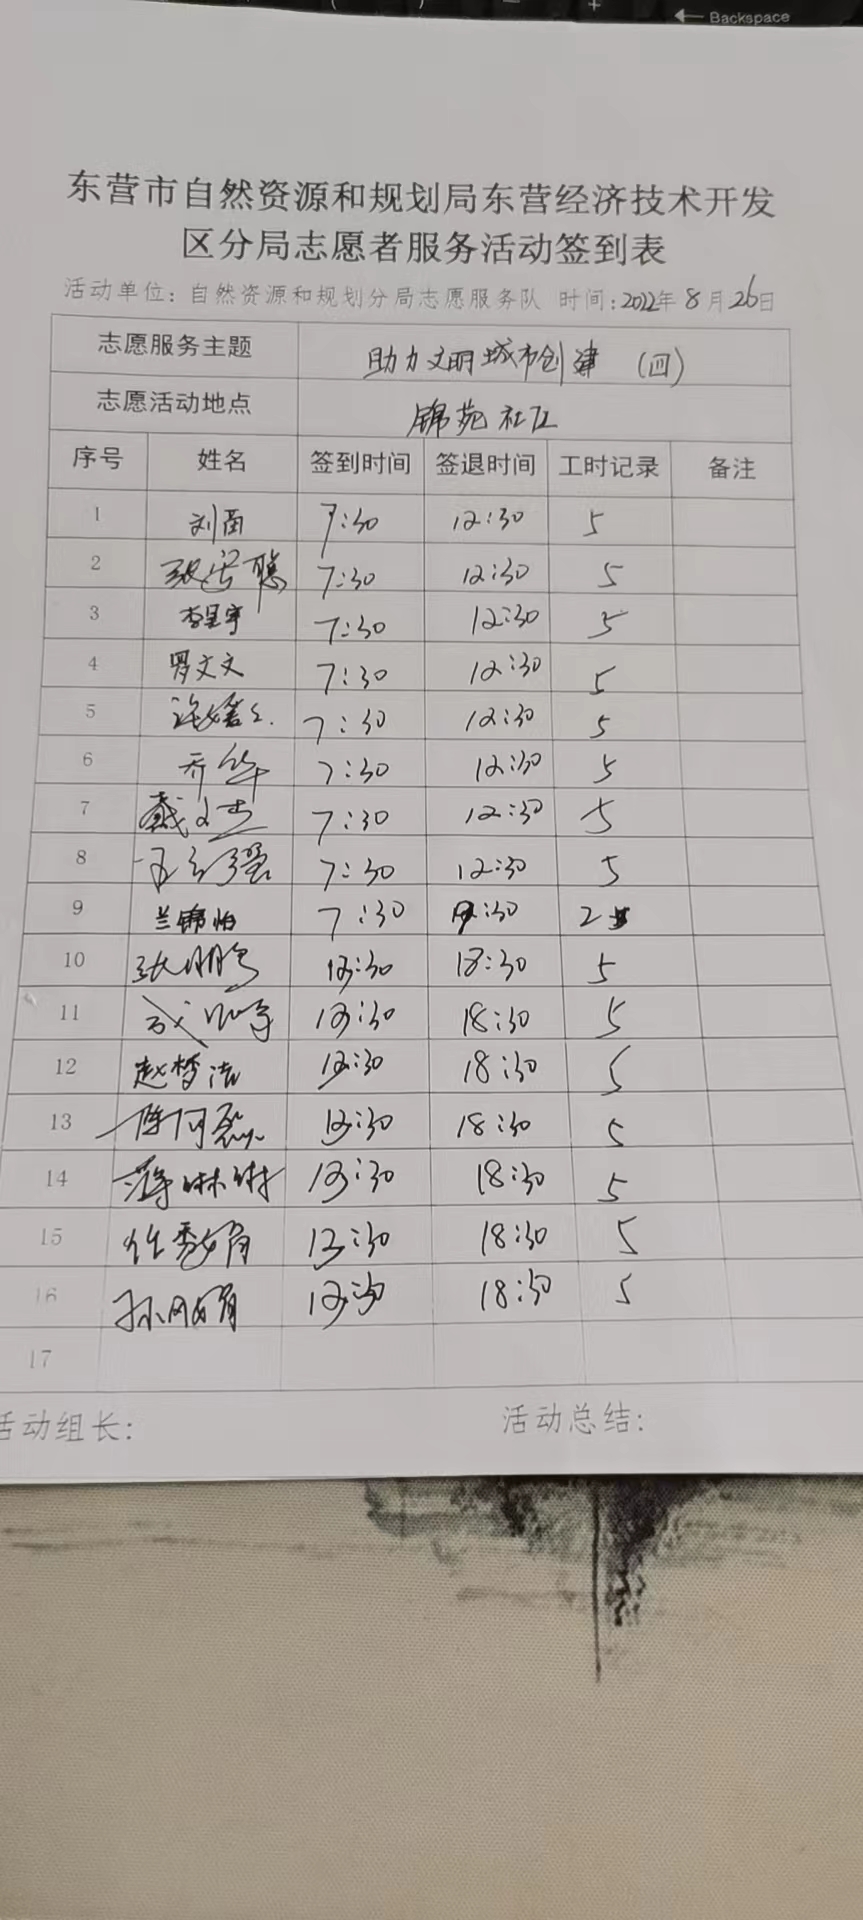 Backspace
东营市自然资源和规划局东营经济技术开发
区分局志愿者服务活动签到表
活动单位：自然资源和规划分局志愿服务队 时间：2022年8月26日
志愿服务主题 助力文明城市创建（四）
志愿活动地点 锦苑社区
序号 姓名 签到时间 签退时间 工时记录 备注
1 7:30 12:30 5
2 7:30 12:30 5
3 李星宇 7:30 12:30 5
4 罗文文 7:30 12:30 5
5 7:30 12:30 5
6 乔华 7:30 12:30 5
7 7:30 12:30 5
8 7:30 12:30 5
9 兰锦怡 7:30 9:30 2
10 13:30 18:30 5
11 13:30 18:30 5
12 赵梦洁 13:30 18:30 5
13 13:30 18:30 5
14 薛琳琳 13:30 18:30 5
15 任秀娟 13:30 18:30 5
16 13:30 18:30 5
17
活动组长： 活动总结：